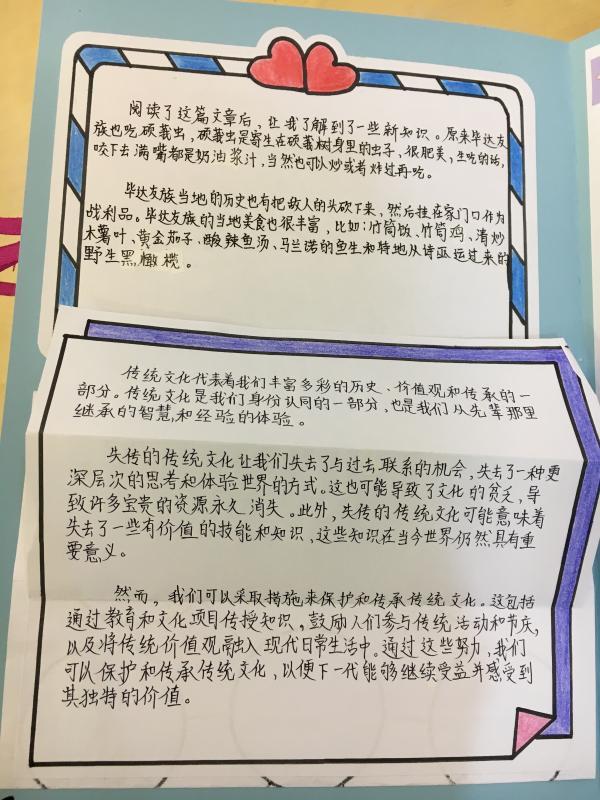 阅读了这篇文章后，让我了解到了一些新知识。原来毕达友
族也吃硕莪虫，硕莪虫是寄生在硕莪树身里的虫子，很肥美，生吃的话，
咬下去满嘴都是奶油浆汁，当然也可以炒或者炸过再吃。
毕达友族当地的历史也有把敌人的头砍下来，然后挂在家门口作为
战利品。毕达友族的当地美食也很丰富，比如：竹筒饭、竹筒鸡、清炒
木薯叶、黄金茄子、酸辣鱼汤、马兰诺的鱼生和特地从诗巫运过来的
野生黑橄榄。
传统文化代表着我们丰富多彩的历史、价值观和传承的一
部分。传统文化是我们身份认同的一部分，也是我们从先辈那里
继承的智慧和经验的体验。
失传的传统文化让我们失去了与过去联系的机会，失去了一种更
深层次的思考和体验世界的方式。这也可能导致了文化的贫乏，导
致许多宝贵的资源永久消失。此外，失传的传统文化可能意味着
失去了一些有价值的技能和知识，这些知识在当今世界仍然具有重
要意义。
然而，我们可以采取措施来保护和传承传统文化。这包括
通过教育和文化项目传授知识，鼓励人们参与传统活动和节庆，
以及将传统价值观融入现代日常生活中。通过这些努力，我们
可以保护和传承传统文化，以便下一代能够继续受益并感受到
其独特的价值。